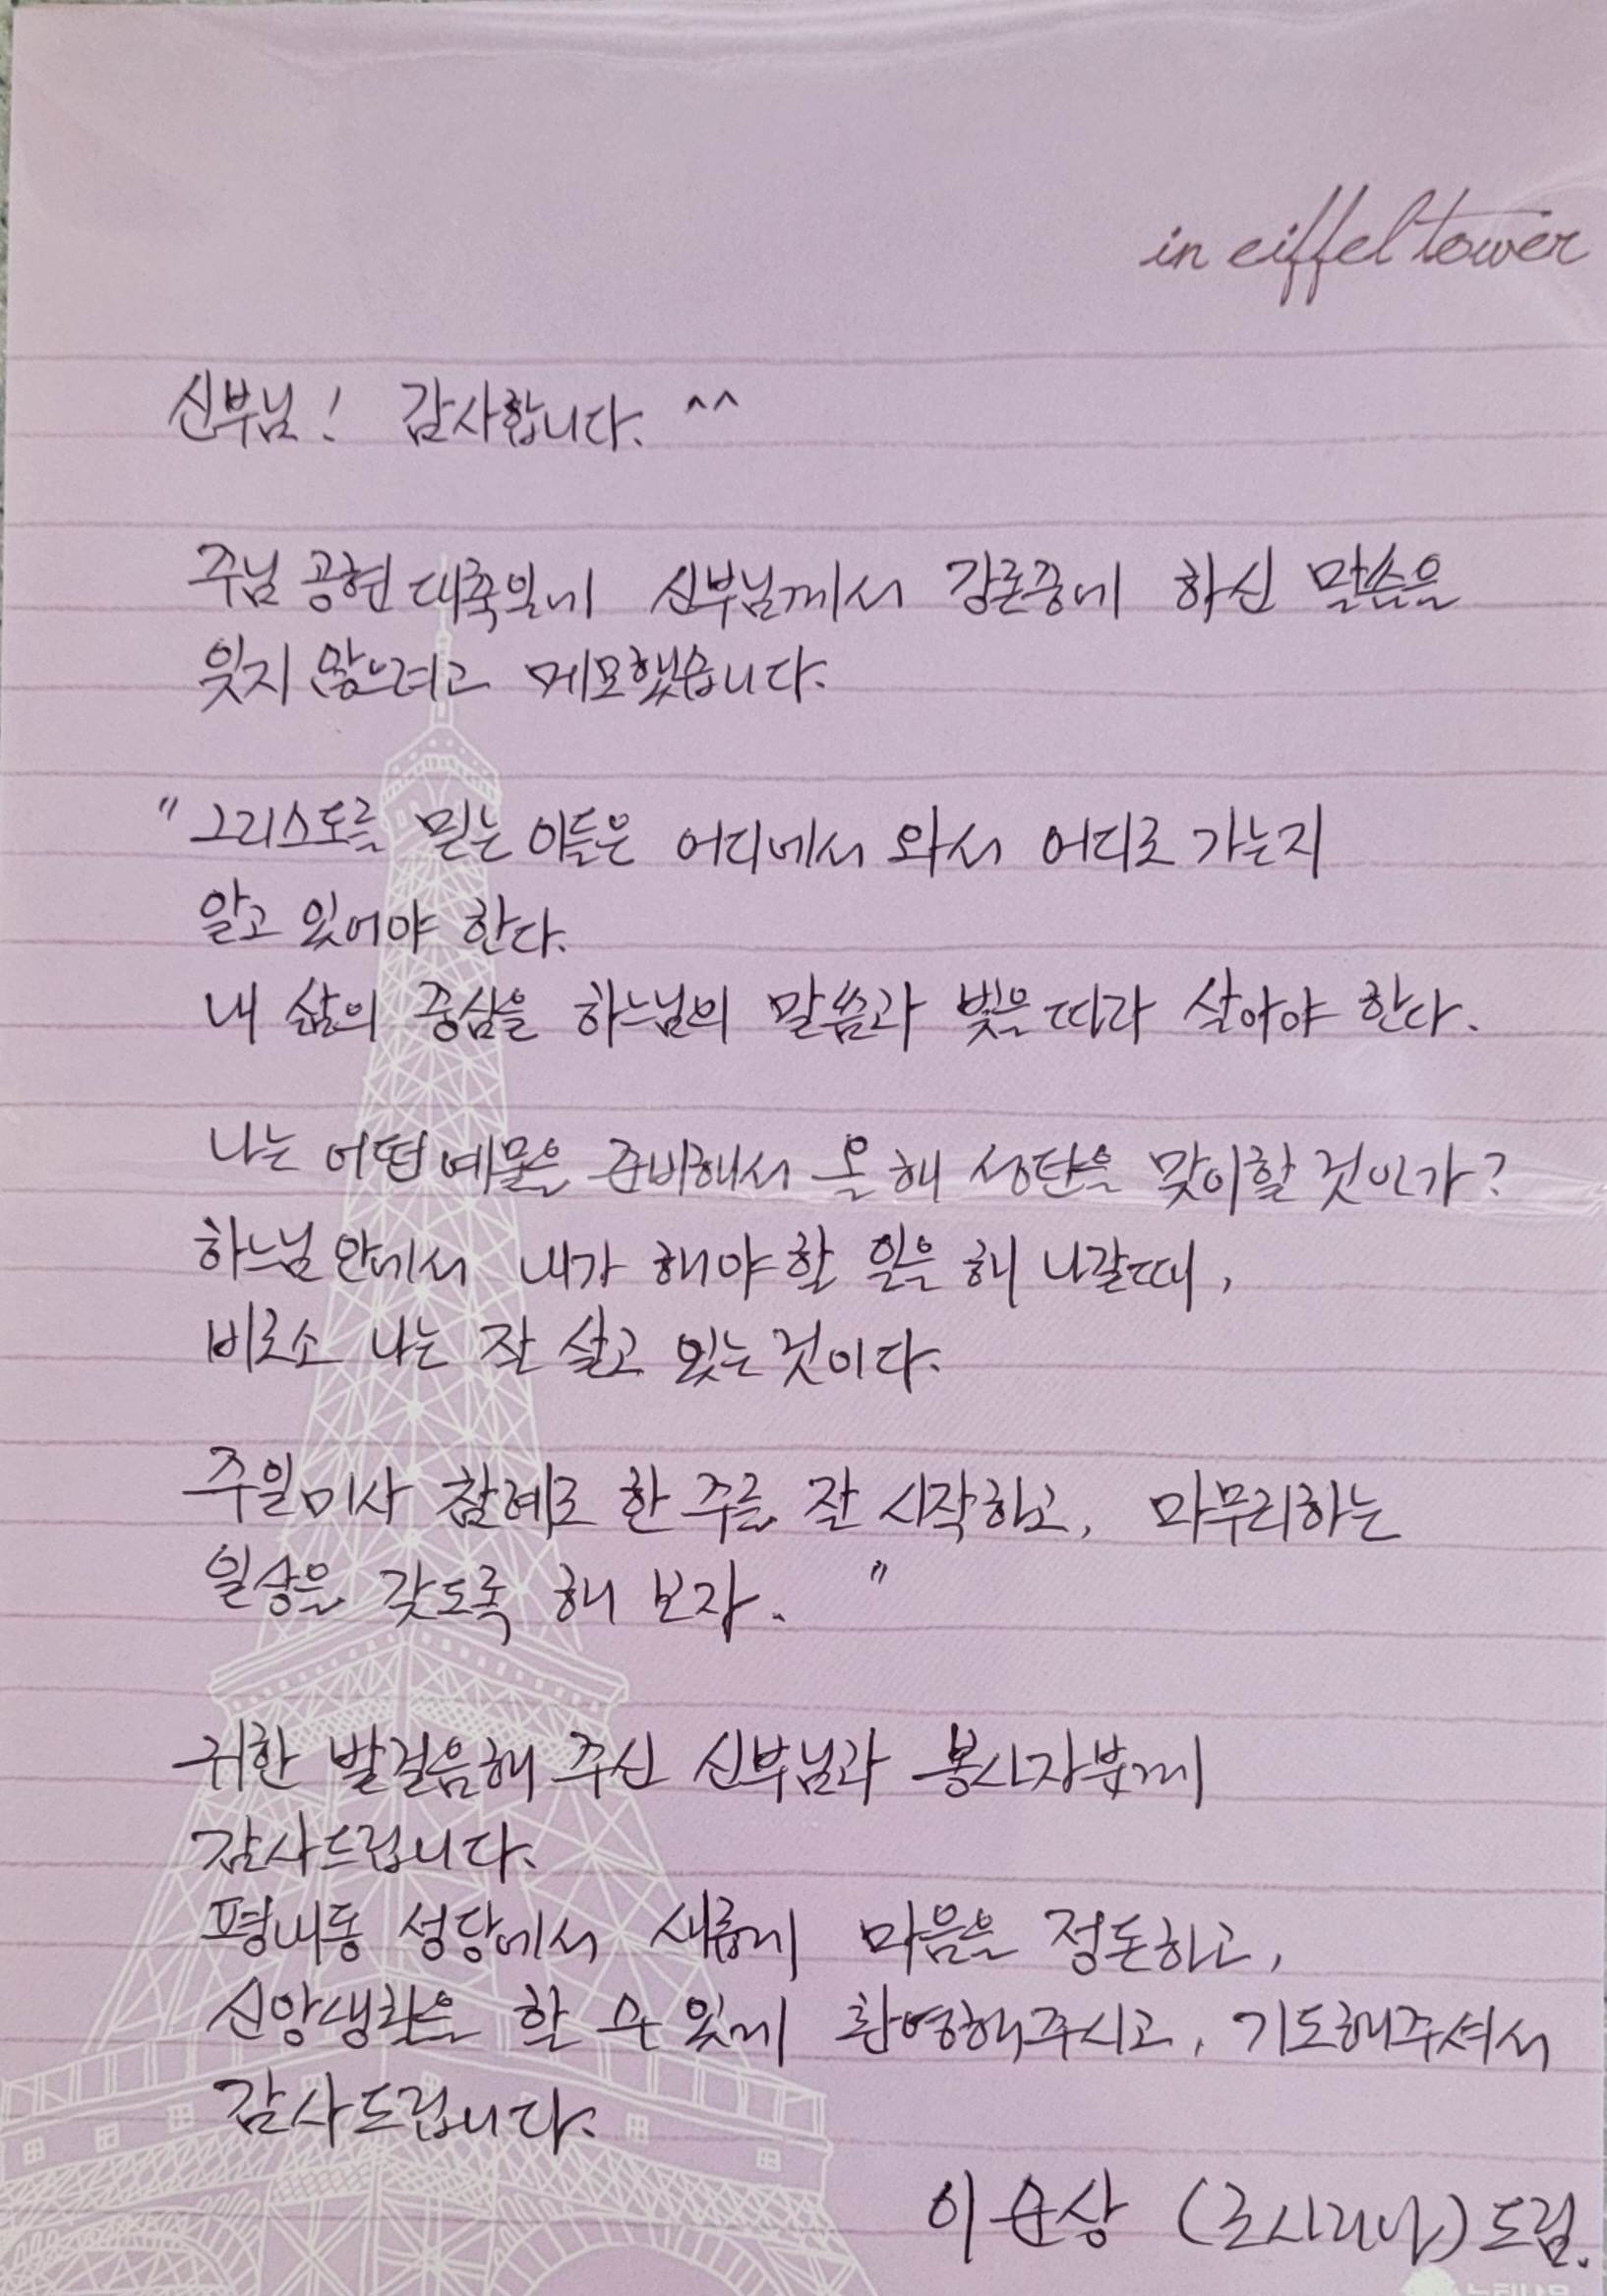 in eiffel tower
신부님! 감사합니다. ^^
주님 공현 대축일에 신부님께서 강론중에 하신 말씀을
잊지 않으려고 메모했습니다.
"그리스도를 믿는 이들은 어디에서 와서 어디로 가는지
알고 있어야 한다.
내 삶의 중심을 하느님의 말씀과 빛을 따라 살아야 한다.
나는 어떤 예물을 준비해서 올해 성탄을 맞이할 것인가?
하느님 안에서 내가 해야 할 일을 해 나갈때,
비로소 나는 잘 살고 있는 것이다.
주일미사 참례로 한 주를 잘 시작하고, 마무리하는
일상을 갖도록 해 보자. "
귀한 발걸음해 주신 신부님과 봉사자분께
감사드립니다.
평내동 성당에서 새롭게 마음을 정돈하고,
신앙생활을 할 수 있게 환영해주시고, 기도해주셔서
감사드립니다.
이순상 (로사리아) 드림.